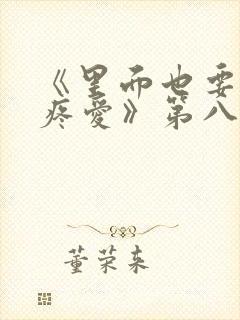 《里面也要
疼爱》第八
董荣来